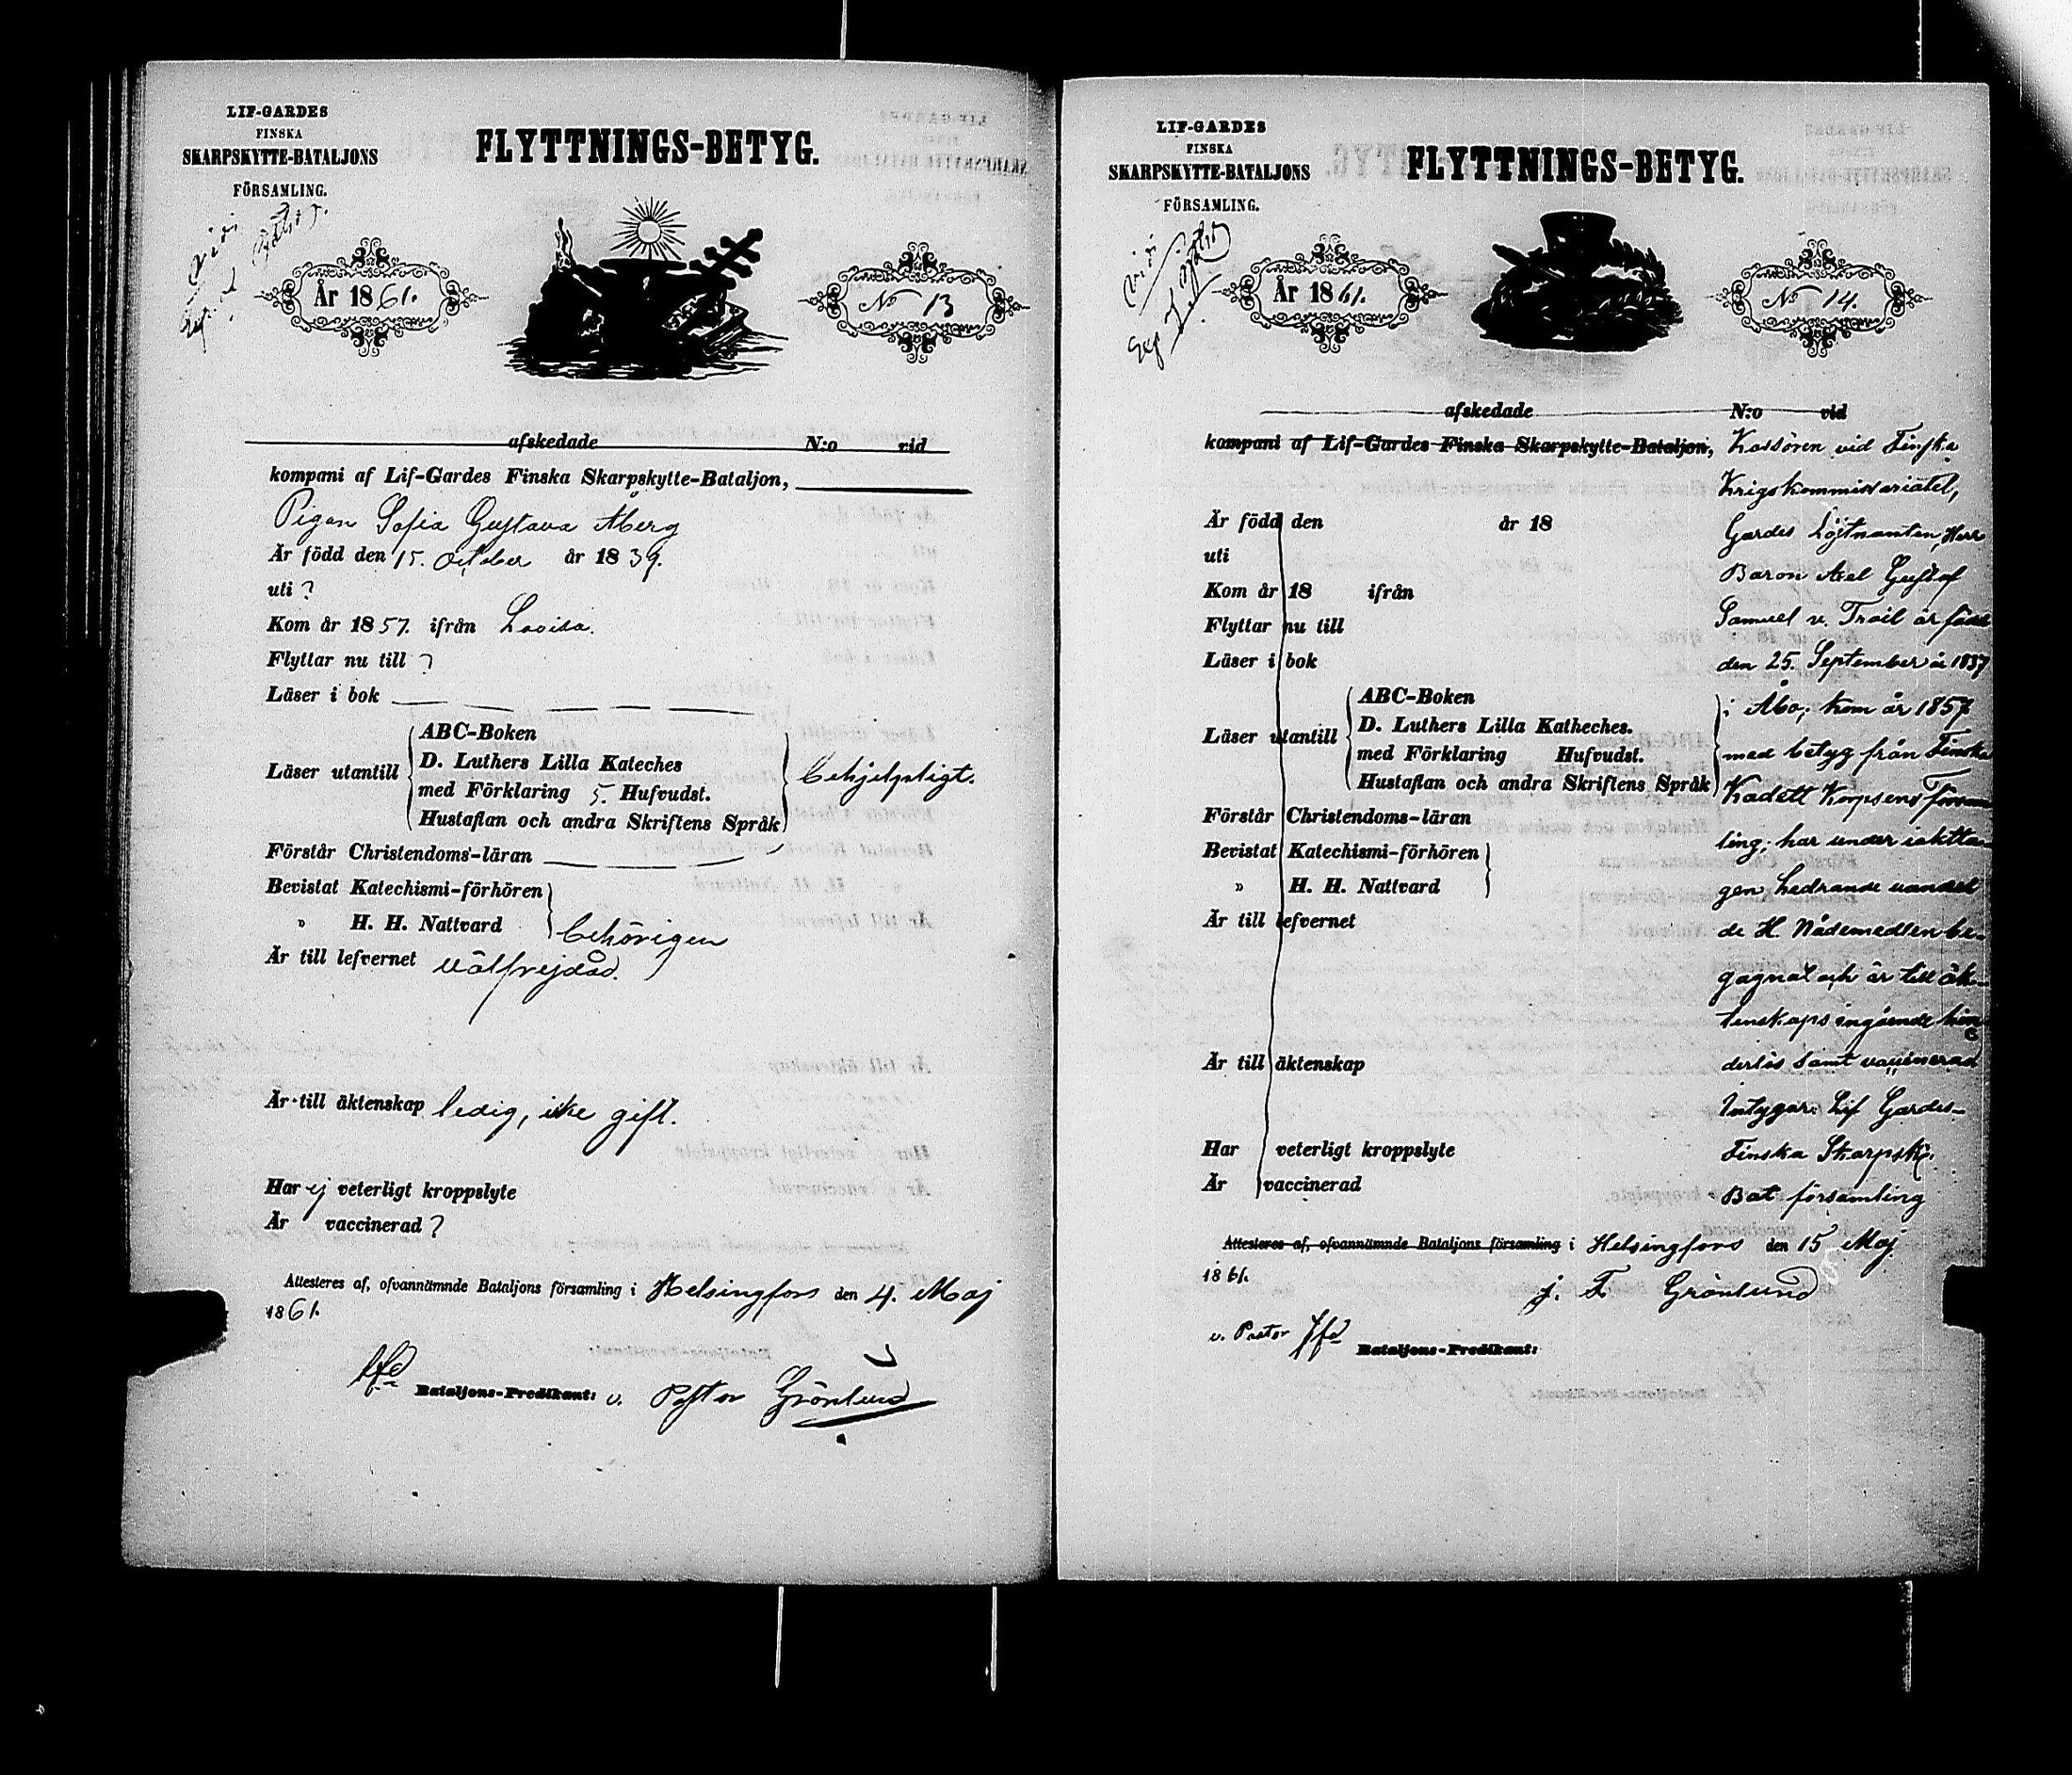 LIF-GARDES
FINSKA
SKARPSKYTTE-BATALJONS
FÖRSAMLING.
FLYTTNINGS-BETYG.
År 1861.
No 13
afskedade N:o vid
kompani af Lif-Gardes Finska Skarpskytte-Bataljon,
Pigan Sofia Gustava Åberg
Är född den 15. October år 1839.
uti ?
Kom år 1857. ifrån Lovisa.
Flyttar nu till ?
Läser i bok
Läser utantill
ABC-Boken
D. Luthers Lilla Kateches
med Förklaring 5. Hufvudst.
Hustaflan och andra Skriftens Språk
behjelpligt.
Förstår Christendoms-läran
Bevistat Katechismi-förhören
" H. H. Nattvard
behörigen
Är till lefvernet välfrejdad.
Är till äktenskap ledig, icke gift.
Har ej veterligt kroppslyte
Är vaccinerad ?
Attesteres af, ofvannämnde Bataljons församling i Helsingfors den 4. Maj
1861.
Bataljons-Predikant: v. Pastor Grönlund
LIF-GARDES
FINSKA
SKARPSKYTTE-BATALJONS
FÖRSAMLING.
FLYTTNINGS-BETYG.
År 1861.
No 14.
afskedade N:o vid
kompani af Lif-Gardes Finska Skarpskytte-Bataljon, Kassören vid Finska
Krigskommissariatet,
Gardes Löjtnanten, Herr
Baron Axel Gustaf
Samuel v. Troil är född
den 25. September år 1837
i Åbo; kom år 1857
med betyg från Finska
Kadett Korpsens Försam
ling; har under iakttan
gen hedrande vandel
de H. Nådemedlen be-
gagnat och är till äk-
tenskaps ingående hin
derlös samt vaccinerad
Intygar: Lif Gardes-
Finska Skarpsk.
Bat församling
Är född den år 18
uti
Kom år 18 ifrån
Flyttar nu till
Läser i bok
Läser utantill
ABC-Boken
D. Luthers Lilla Katheches.
med Förklaring Hufvudst.
Hustaflan och andra Skriftens Språk
Förstår Christendoms-läran
Bevistat Katechismi-förhören
" H. H. Nattvard
Är till lefvernet
Är till äktenskap
Har veterligt kroppslyte
Är vaccinerad
Attesteres af, ofvannämnde Bataljons församling i Helsingfors den 15 Maj
1861.
J. F. Grönlund
v. Pastor
Bataljons-Predikant: